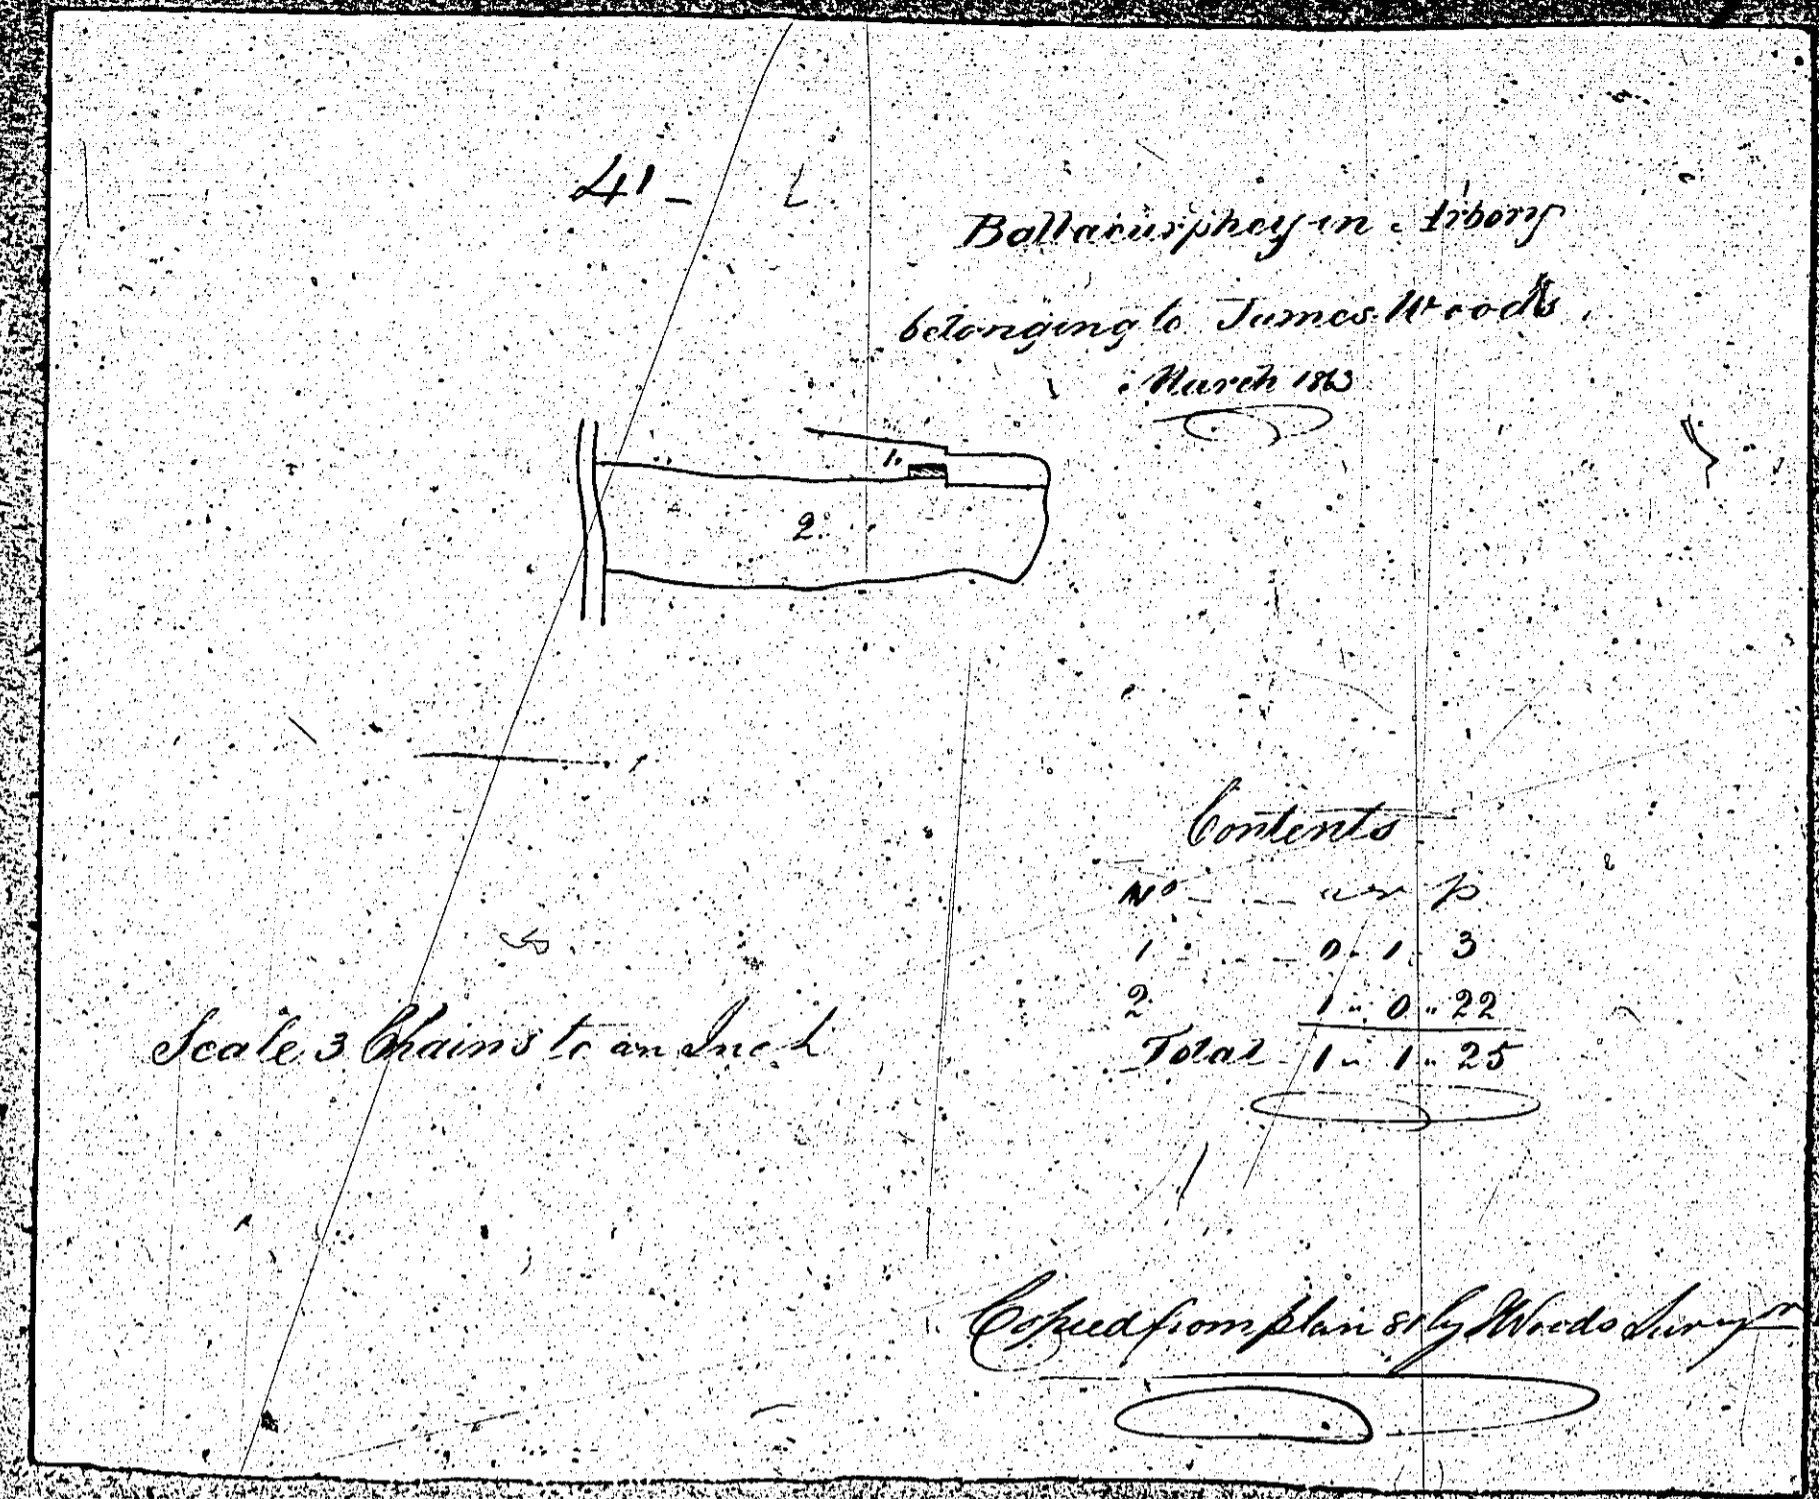 41 -
Ballacurphey in Arbory
belonging to James Woods
March 1863
1.
2.
Contents
No a r p
1 0 .. 1 .. 3
2 1 .. 0 .. 22
Total 1 .. 1 .. 25
Scale 3 Chains to an Inch
Copied from plan by Woods Survyr